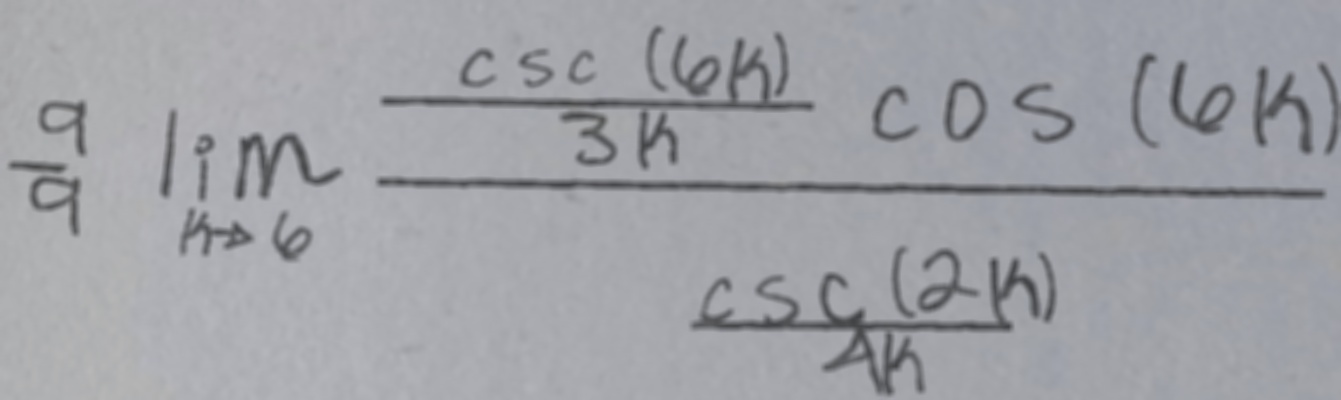 \frac{9}{9} \lim_{k \to 6} \frac{\frac{\csc (6k)}{3k} \cos (6k)}{\frac{\csc (2k)}{4k}}